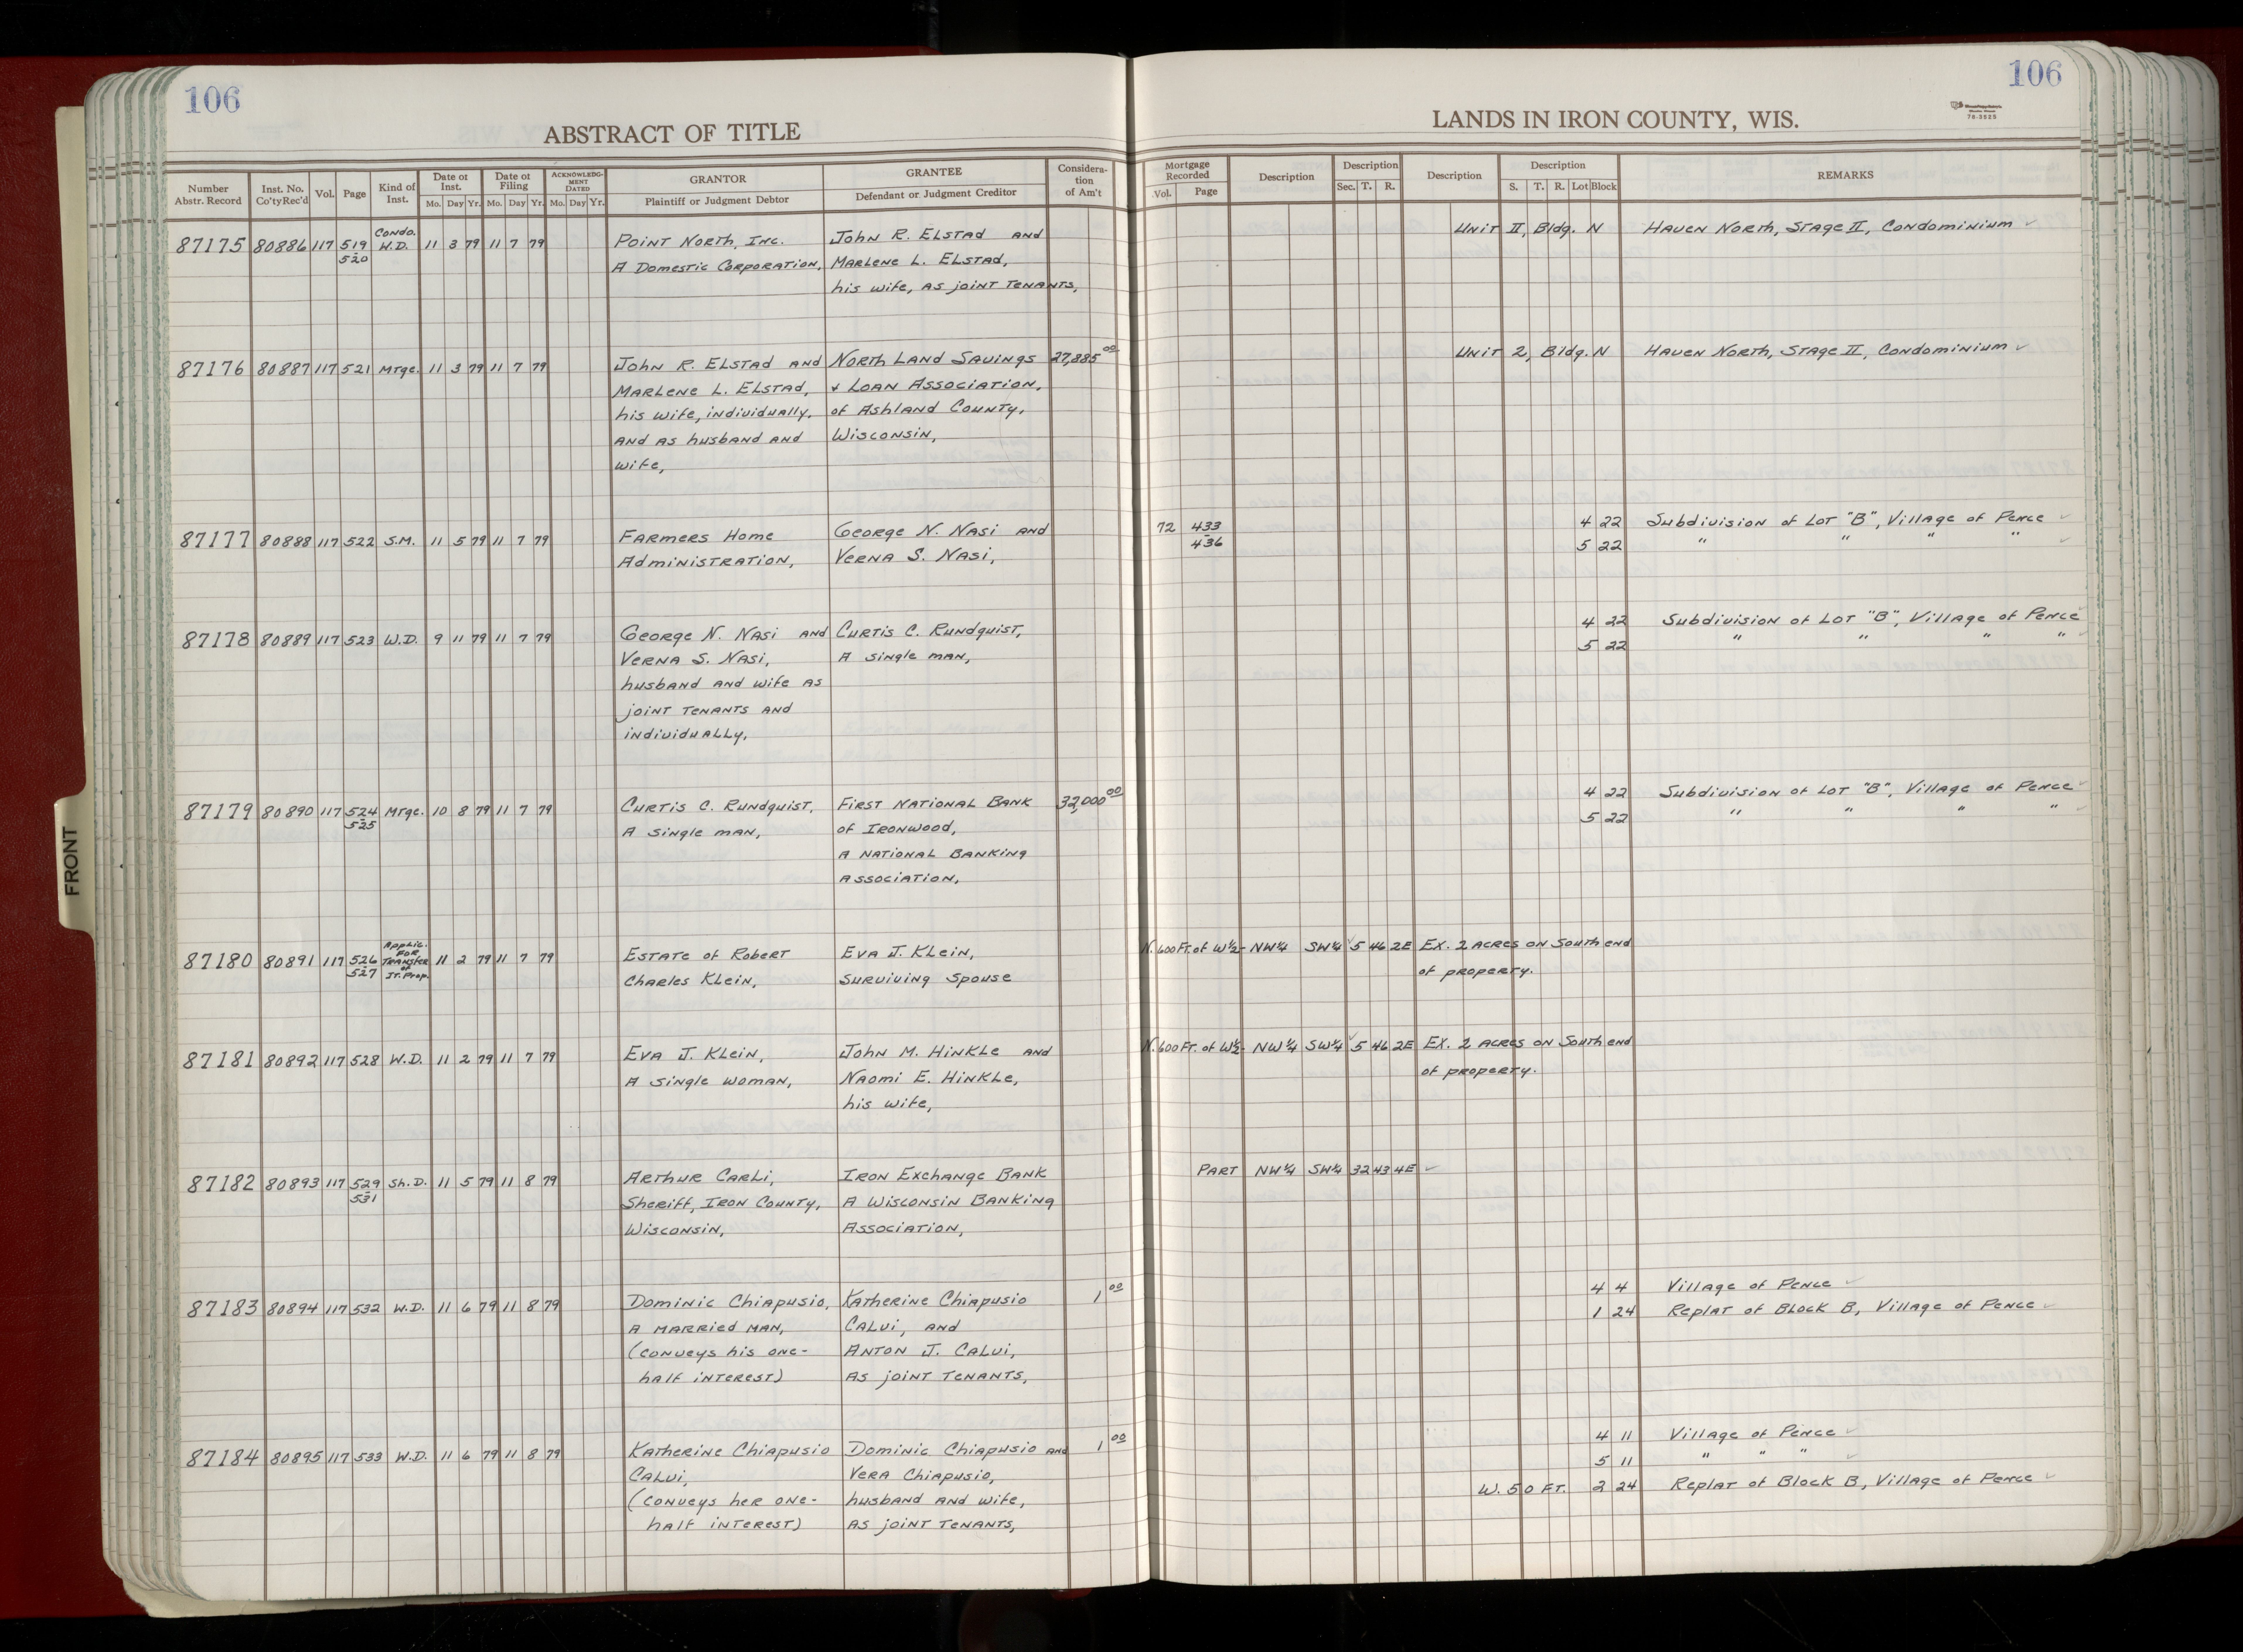 106
ABSTRACT OF TITLE
Number Abstr. Record
Inst. No. Co'ty Rec'd
Vol.
Page
Kind of Inst.
Date of Inst.
Mo. Day Yr.
Date of Filing
Mo. Day Yr.
ACKNOWLEDGMENT DATED
Mo. Day Yr.
GRANTOR
Plaintiff or Judgment Debtor
GRANTEE
Defendant or Judgment Creditor
Consideration of Am't
106
LANDS IN IRON COUNTY, WIS.
78-3925
Mortgage Recorded
Vol. Page
Description
Description
Sec. T. R.
Description
Description
S. T. R. Lot Block
REMARKS
87175 80886 117 519-520 Condo. W.D. 11 3 79 11 7 79 Point North, Inc. John R. Elstad and Unit II, Bldg. N Haven North, Stage II, Condominium ✓
A Domestic Corporation, Marlene L. Elstad,
his wife, as joint tenants,
87176 80887 117 521 Mtge. 11 3 79 11 7 79 John R. Elstad and North Land Savings 27,885 00 Unit 2, Bldg. N Haven North, Stage II, Condominium ✓
Marlene L. Elstad, + Loan Association,
his wife, individually, of Ashland County,
and as husband and Wisconsin,
wife,
87177 80888 117 522 S.M. 11 5 79 11 7 79 Farmers Home George N. Nasi and 72 433-436 4 22 Subdivision of Lot "B", Village of Pence ✓
Administration, Verna S. Nasi, 5 22 " " " " ✓
87178 80889 117 523 W.D. 9 11 79 11 7 79 George N. Nasi and Curtis C. Rundquist, 4 22 Subdivision of Lot "B", Village of Pence ✓
Verna S. Nasi, A single man, 5 22 " " " " ✓
husband and wife as
joint tenants and
individually,
87179 80890 117 524-525 Mtge. 10 8 79 11 7 79 Curtis C. Rundquist, First National Bank 32,000 00 4 22 Subdivision of Lot "B", Village of Pence ✓
A single man, of Ironwood, 5 22 " " " " ✓
A National Banking
Association,
87180 80891 117 526-527 Applic. for Transfer of Jt. Prop. 11 2 79 11 7 79 Estate of Robert Eva J. Klein, N. 600 Ft. of W½- NW¼ SW¼ ✓ 5 46 2E Ex. 2 acres on South end
Charles Klein, Surviving Spouse of property.
87181 80892 117 528 W.D. 11 2 79 11 7 79 Eva J. Klein, John M. Hinkle and N. 600 Ft. of W½- NW¼ SW¼ ✓ 5 46 2E Ex. 2 acres on South end
A single woman, Naomi E. Hinkle, of property.
his wife,
87182 80893 117 529-531 Sh. D. 11 5 79 11 8 79 Arthur Carli, Iron Exchange Bank Part NW¼ SW¼ 32 43 4E ✓
Sheriff, Iron County, A Wisconsin Banking
Wisconsin, Association,
87183 80894 117 532 W.D. 11 6 79 11 8 79 Dominic Chiapusio, Katherine Chiapusio 1 00 4 4 Village of Pence ✓
A married man, Calvi, and 1 24 Replat of Block B, Village of Pence ✓
(conveys his one- Anton J. Calvi,
half interest) As joint tenants,
87184 80895 117 533 W.D. 11 6 79 11 8 79 Katherine Chiapusio Dominic Chiapusio and 1 00 4 11 Village of Pence ✓
Calvi, Vera Chiapusio, 5 11 " " " ✓
(conveys her one- husband and wife, W. 50 Ft. 2 24 Replat of Block B, Village of Pence ✓
half interest) As joint tenants,
FRONT